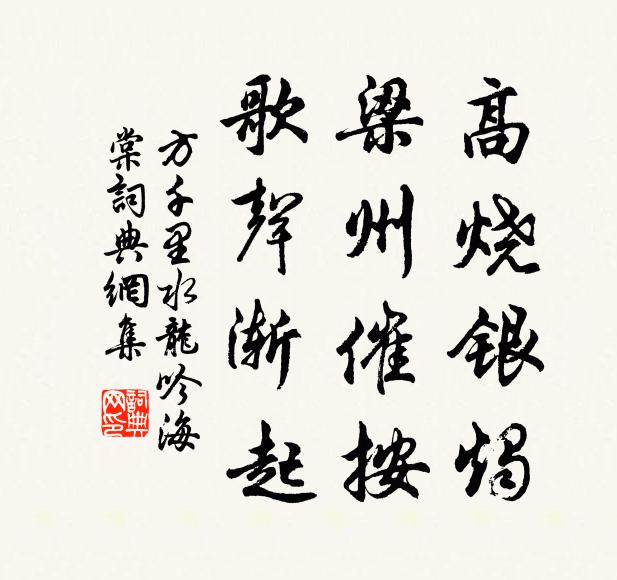 高烧银烛
梁州催按
歌聲渐起
方千里水龍吟海
棠詞典網集
詞典
网印